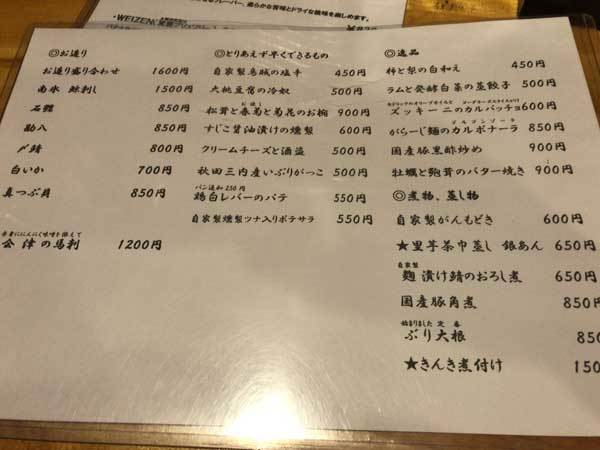 ・WEIZEN
フレーバー、柔らかな苦味とドライな酸味を楽しめます。
◎お造り
お造り盛り合わせ 1600円
南氷 鯨刺し 1500円
石鰹 850円
勘八 850円
〆鯖 800円
白いか 700円
真つぶ貝 850円
辛者ににんにく味噌を添えて
会津の馬刺 1200円
◎とりあえず早くできるもの
自家製烏賊の塩辛 450円
大桃豆腐の冷奴 500円
お浸し
松茸と春菊と菊花のお椀 900円
すじこ醤油漬けの燻製 600円
クリームチーズと酒盗 500円
秋田三内産いぶりがっこ 500円
パン追加250円
鶏白レバーのパテ 550円
自家製燻製ツナ入りポテサラ 550円
◎逸品
柿と梨の白和え 450円
ラムと発酵白菜の蒸餃子 500円
ズッキーニのカルパッチョ 600円
ゴルゴンゾーラ
がらーじ麺のカルボナーラ 850円
国産豚黒酢炒め 900円
牡蠣と鮑茸のバター焼き 900円
◎煮物、蒸し物
自家製がんもどき 600円
★里芋茶巾蒸し 銀あん 650円
自家製
麹漬け鯖のおろし煮 650円
国産豚角煮 850円
始まりました 定番
ぶり大根 850
★きんき煮付け 150